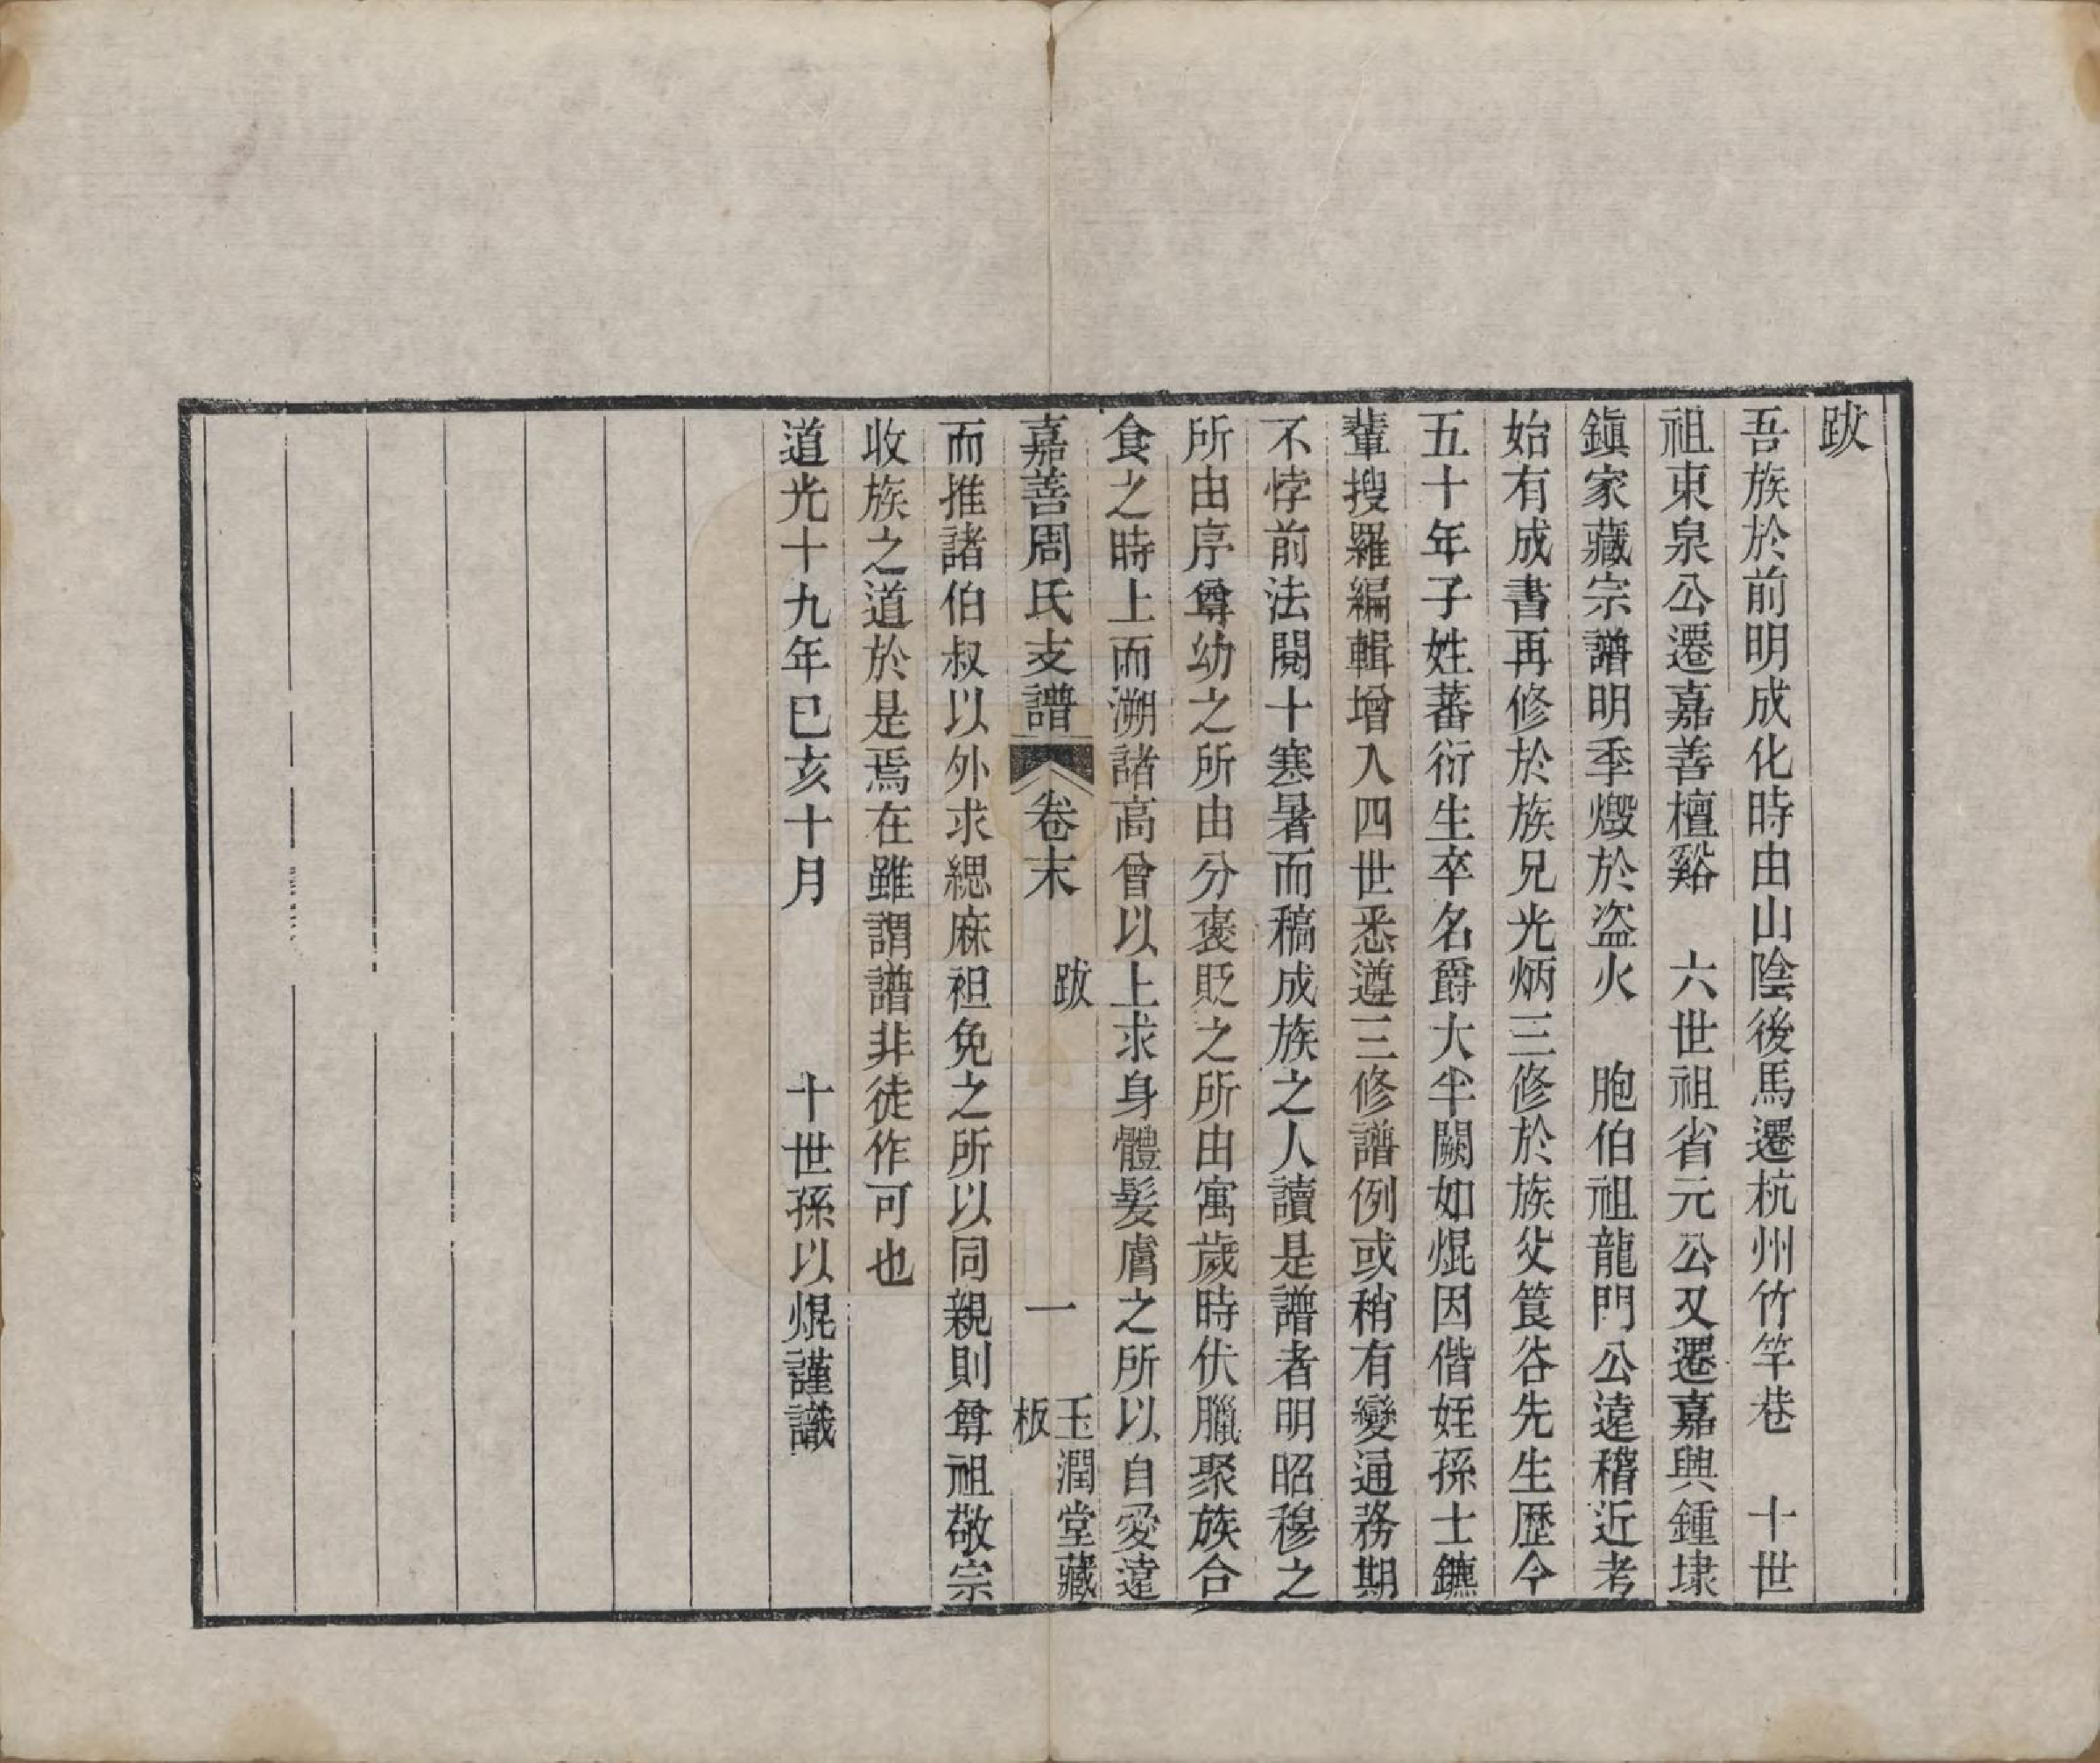 跋
吾族於前明成化時由山陰後馬遷杭州竹竿巷　十世
祖東泉公遷嘉善檀谿　六世祖省元公又遷嘉興鍾埭
鎭家藏宗譜明季燬於盜火　胞伯祖龍門公遠稽近考
始有成書再修於族兄光炳三修於族父篔谷先生歷今
五十年子姓蕃衍生卒名爵大半闕如焜因偕姪孫士鑣
輩搜羅編輯增入四世悉遵三修譜例或稍有變通務期
不悖前法閱十寒暑而稿成族之人讀是譜者明昭穆之
所由序尊幼之所由分褒貶之所由寓歲時伏臘聚族合
食之時上而溯諸高曾以上求身體髮膚之所以自愛遠
嘉善周氏支譜　卷末　跋　一　玉潤堂藏板
而推諸伯叔以外求緦麻袒免之所以同親則尊祖敬宗
收族之道於是焉在雖謂譜非徒作可也
道光十九年巳亥十月　　十世孫以焜謹識